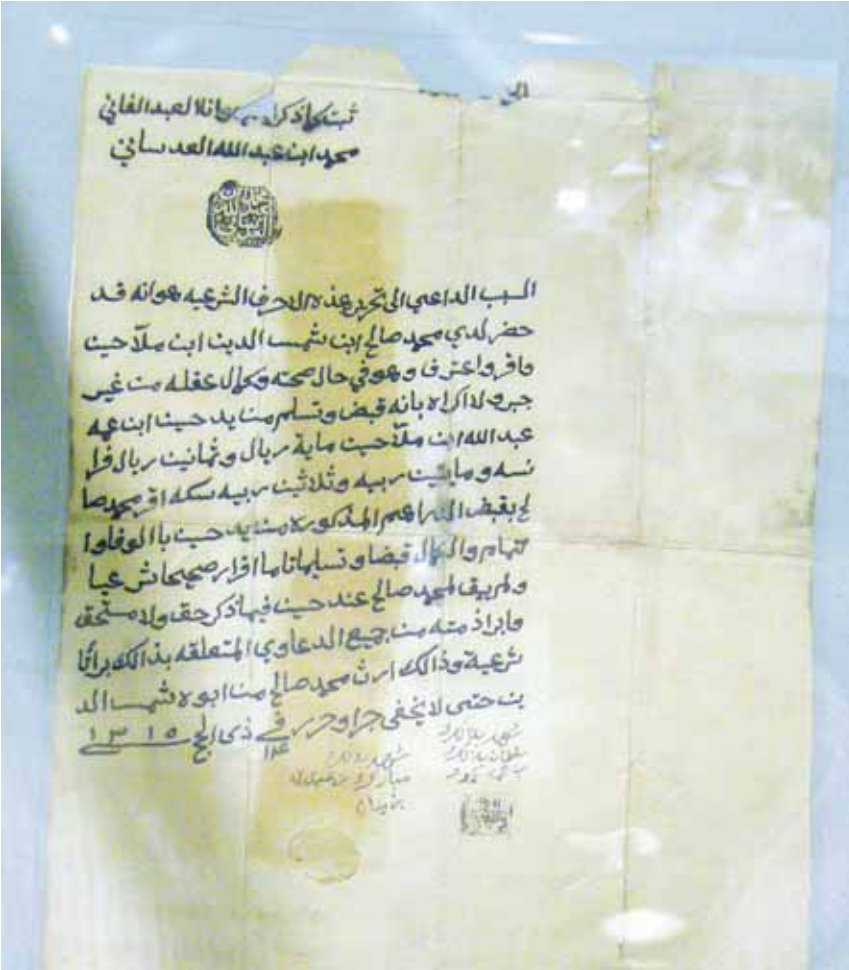 ثبت كما ذكر وانا العبد الفاني
محمد ابن عبد الله العدساني
السبب الداعي الى تحرير هذه الاحرف الشرعيه هو انه قد
حضر لدي محمد صالح ابن شمس الدين ابن ملّا حسين
واقر واعترف وهو في حال صحته وكمال عقله من غير
جبر ولا اكراه بانه قبض وتسلم من يد حسين ابن عمه
عبد الله ابن ملّا حسين ماية ريال وثمانين ريال فرا
نسه ومايتين ربيه وثلاثين ربيه سكه اقر محمد صا
لح بقبض الدراهم المذكوره من يد حسين با الوفا وا
لتمام والكمال قبضا وتسليما تاما اقرار صحيحا شرعيا
ولم يبق لمحمد صالح عند حسين فيما ذكر حق ولا مستحق
وابرا ذمته من جميع الدعاوي المتعلقه بذالك براتا
شرعية وذالك ارث محمد صالح من ابوه شمس الد
ين حتى لا يخفى جرا وحرر في ١٤ ذي الحج ١٣١٥
شهد بذالك
شهد بذالك